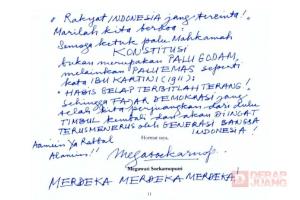 • Rakyat INDONESIA yang tercinta!
Marilah kita berdoa:
Semoga ketuk palu Mahkamah
KONSTITUSI
bukan merupakan PALU GODAM,
melainkan PALU EMAS seperti
kata IBU KARTINI (1911):
• HABIS GELAP TERBITLAH TERANG!
Sehingga FAJAR DEMOKRASI yang
telah kita perjuangkan dari dulu
TIMBUL kembali dan akan DIINGAT
TERUS MENERUS oleh GENERASI BANGSA
INDONESIA!
Aamiin Ya Rabbal
Alamin!!
Hormat saya,
Megawati Soekarnoputri
MERDEKA MERDEKA MERDEKA!
11
DERAP
JUANG